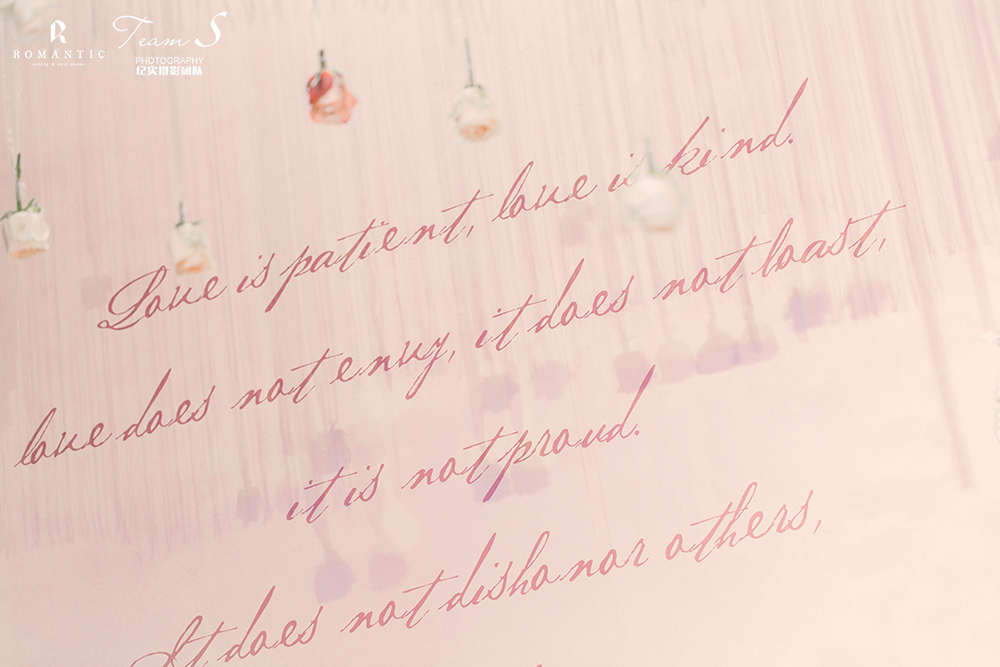 ROMANTIC
wedding & event planner
Team S
PHOTOGRAPHY
纪实摄影团队
Love is patient, love is kind.
love does not envy, it does not boast,
it is not proud.
It does not dishonor others,